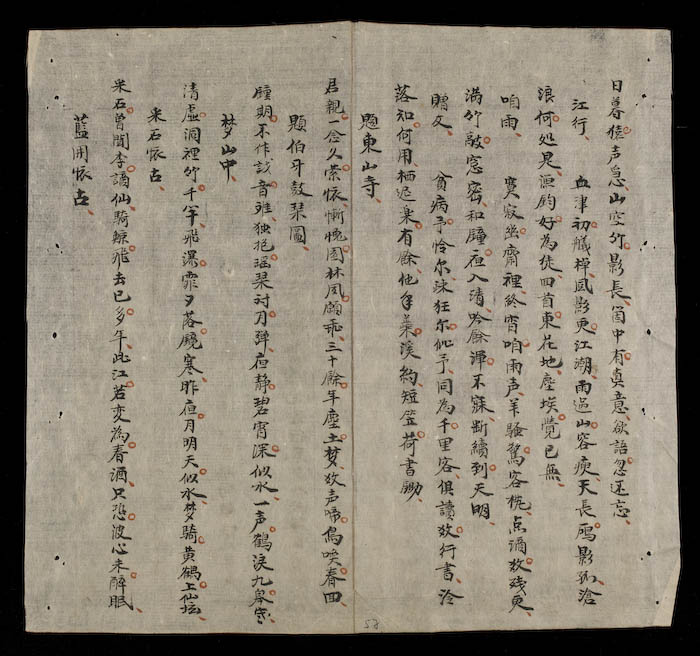 日暮猿声急山空竹影長箇中有真意欲語忽还忘
江行 血津初艤棹風影更江湖雨過山容瘦天長鴈影孤滄
浪何処是漁釣好為徒回首東花地塵埃覺已無
听雨 寞寂幽齋裡終宵听雨声羊騷驚客枕点滴放残更
滿竹敲窓密和鐘夜入清吟餘渾不寐断續到天明
贈友 貧病予怜尔疎狂尔似予同為千里客俱讀放行書冷
落知何用栖迟有餘他年菜溪約短笠荷書鋤
題東山寺
君親一念久萦怀慚愧园林夙願乖三十餘年塵土梦放声啼鳥喚春回
題伯牙鼓琹圖
鍾期不作音难独抱瑶琹対月弹夜静碧霄深似水一声鶴淚九皋寒
梦山中
清虚洞裡竹千竿飛瀑霏夕落鏡寒昨夜月明天似水梦騎黄鶴上仙坛
采石怀古
采石曾聞李謫仙騎鯨飛去已多年此江若变為春酒只恐波心未醉眠
藍関怀古